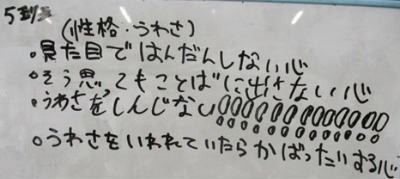 5班
(性格・うわさ)
・見た目ではんだんしない心
・そう思ってもことばに出さない心
・うわさをしんじない!!!!!!!!!!!!!
・うわさをいわれていたらかばったいする心